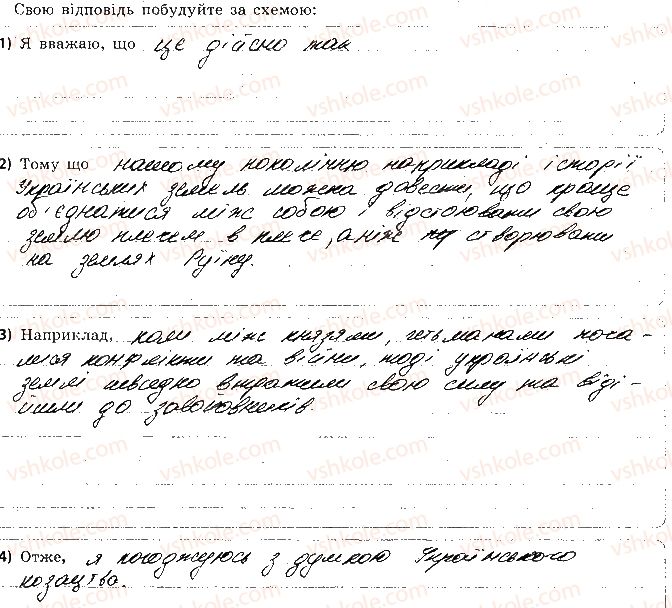 Свою відповідь побудуйте за схемою:
1) Я вважаю, що це дійсно так
2) Тому що нашому поколінню наприкладі історії
Українських земель можна довести, що краще
об'єднатися між собою і відстоювати свою
землю плечем в плече, аніж створювати
на землях Руїну.
3) Наприклад, коли між князями, гетьманами поча-
лися конфлікти та війни, тоді українські
землі швидко втратили свою силу та віді-
йшли до завойовників.
4) Отже, я погоджуюсь з думкою Українського
козацтва.